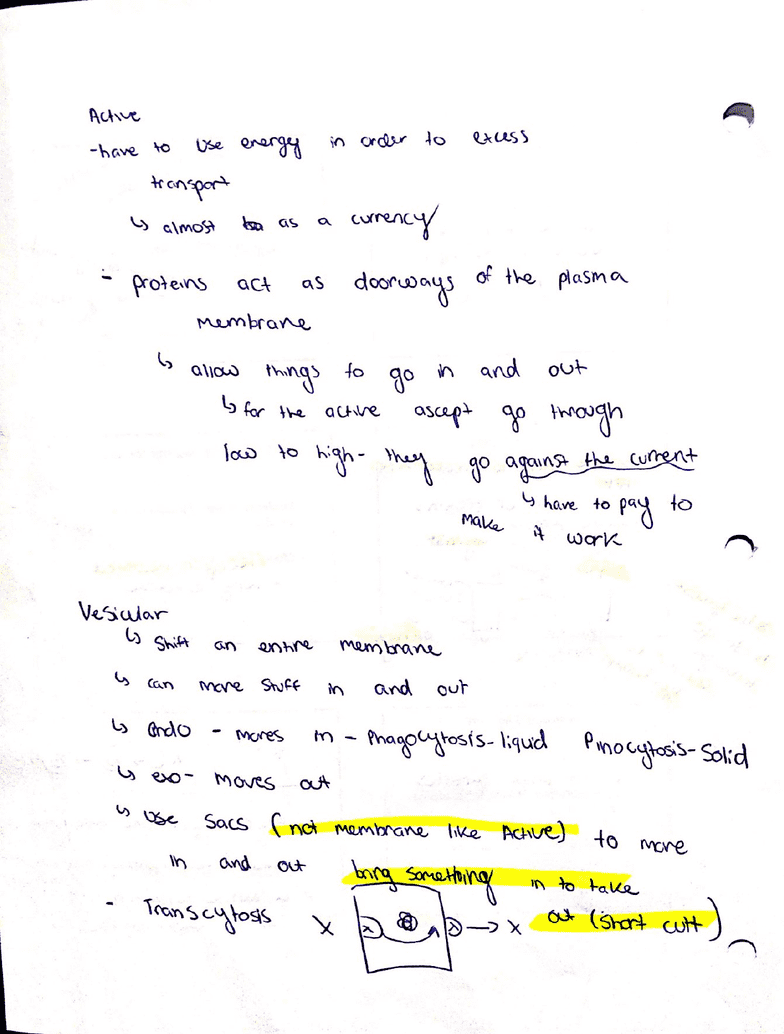 Active
-have to use energy in order to excess
transport
↳ almost as a currency
- proteins act as doorways of the plasma
membrane
↳ allow things to go in and out
↳ for the active ascept go through
low to high - they go against the current
↳ have to pay to
make it work
Vesicular
↳ Shift an entire membrane
↳ can move stuff in and out
↳ endo - moves in - Phagocytosis-liquid Pinocytosis-Solid
↳ exo- moves out
↳ Use Sacs (not membrane like Active) to move
in and out bring something in to take
- Transcytosis X x x → x out (short cutt)